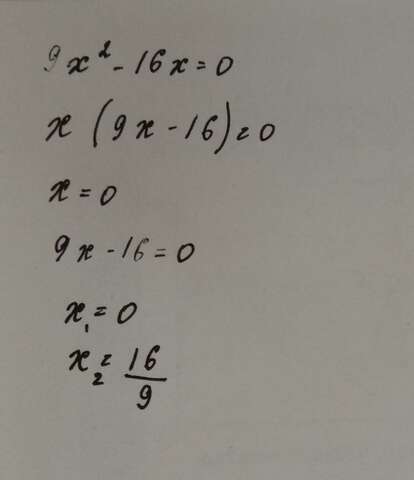 9x² - 16x = 0
x (9x - 16) = 0
x = 0
9x - 16 = 0
x₁ = 0
x₂ = 16/9